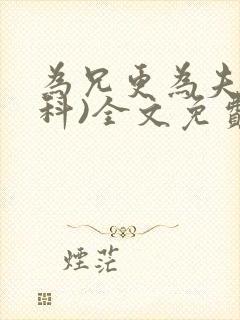 為兄更為夫
科)全文免費
煙茫